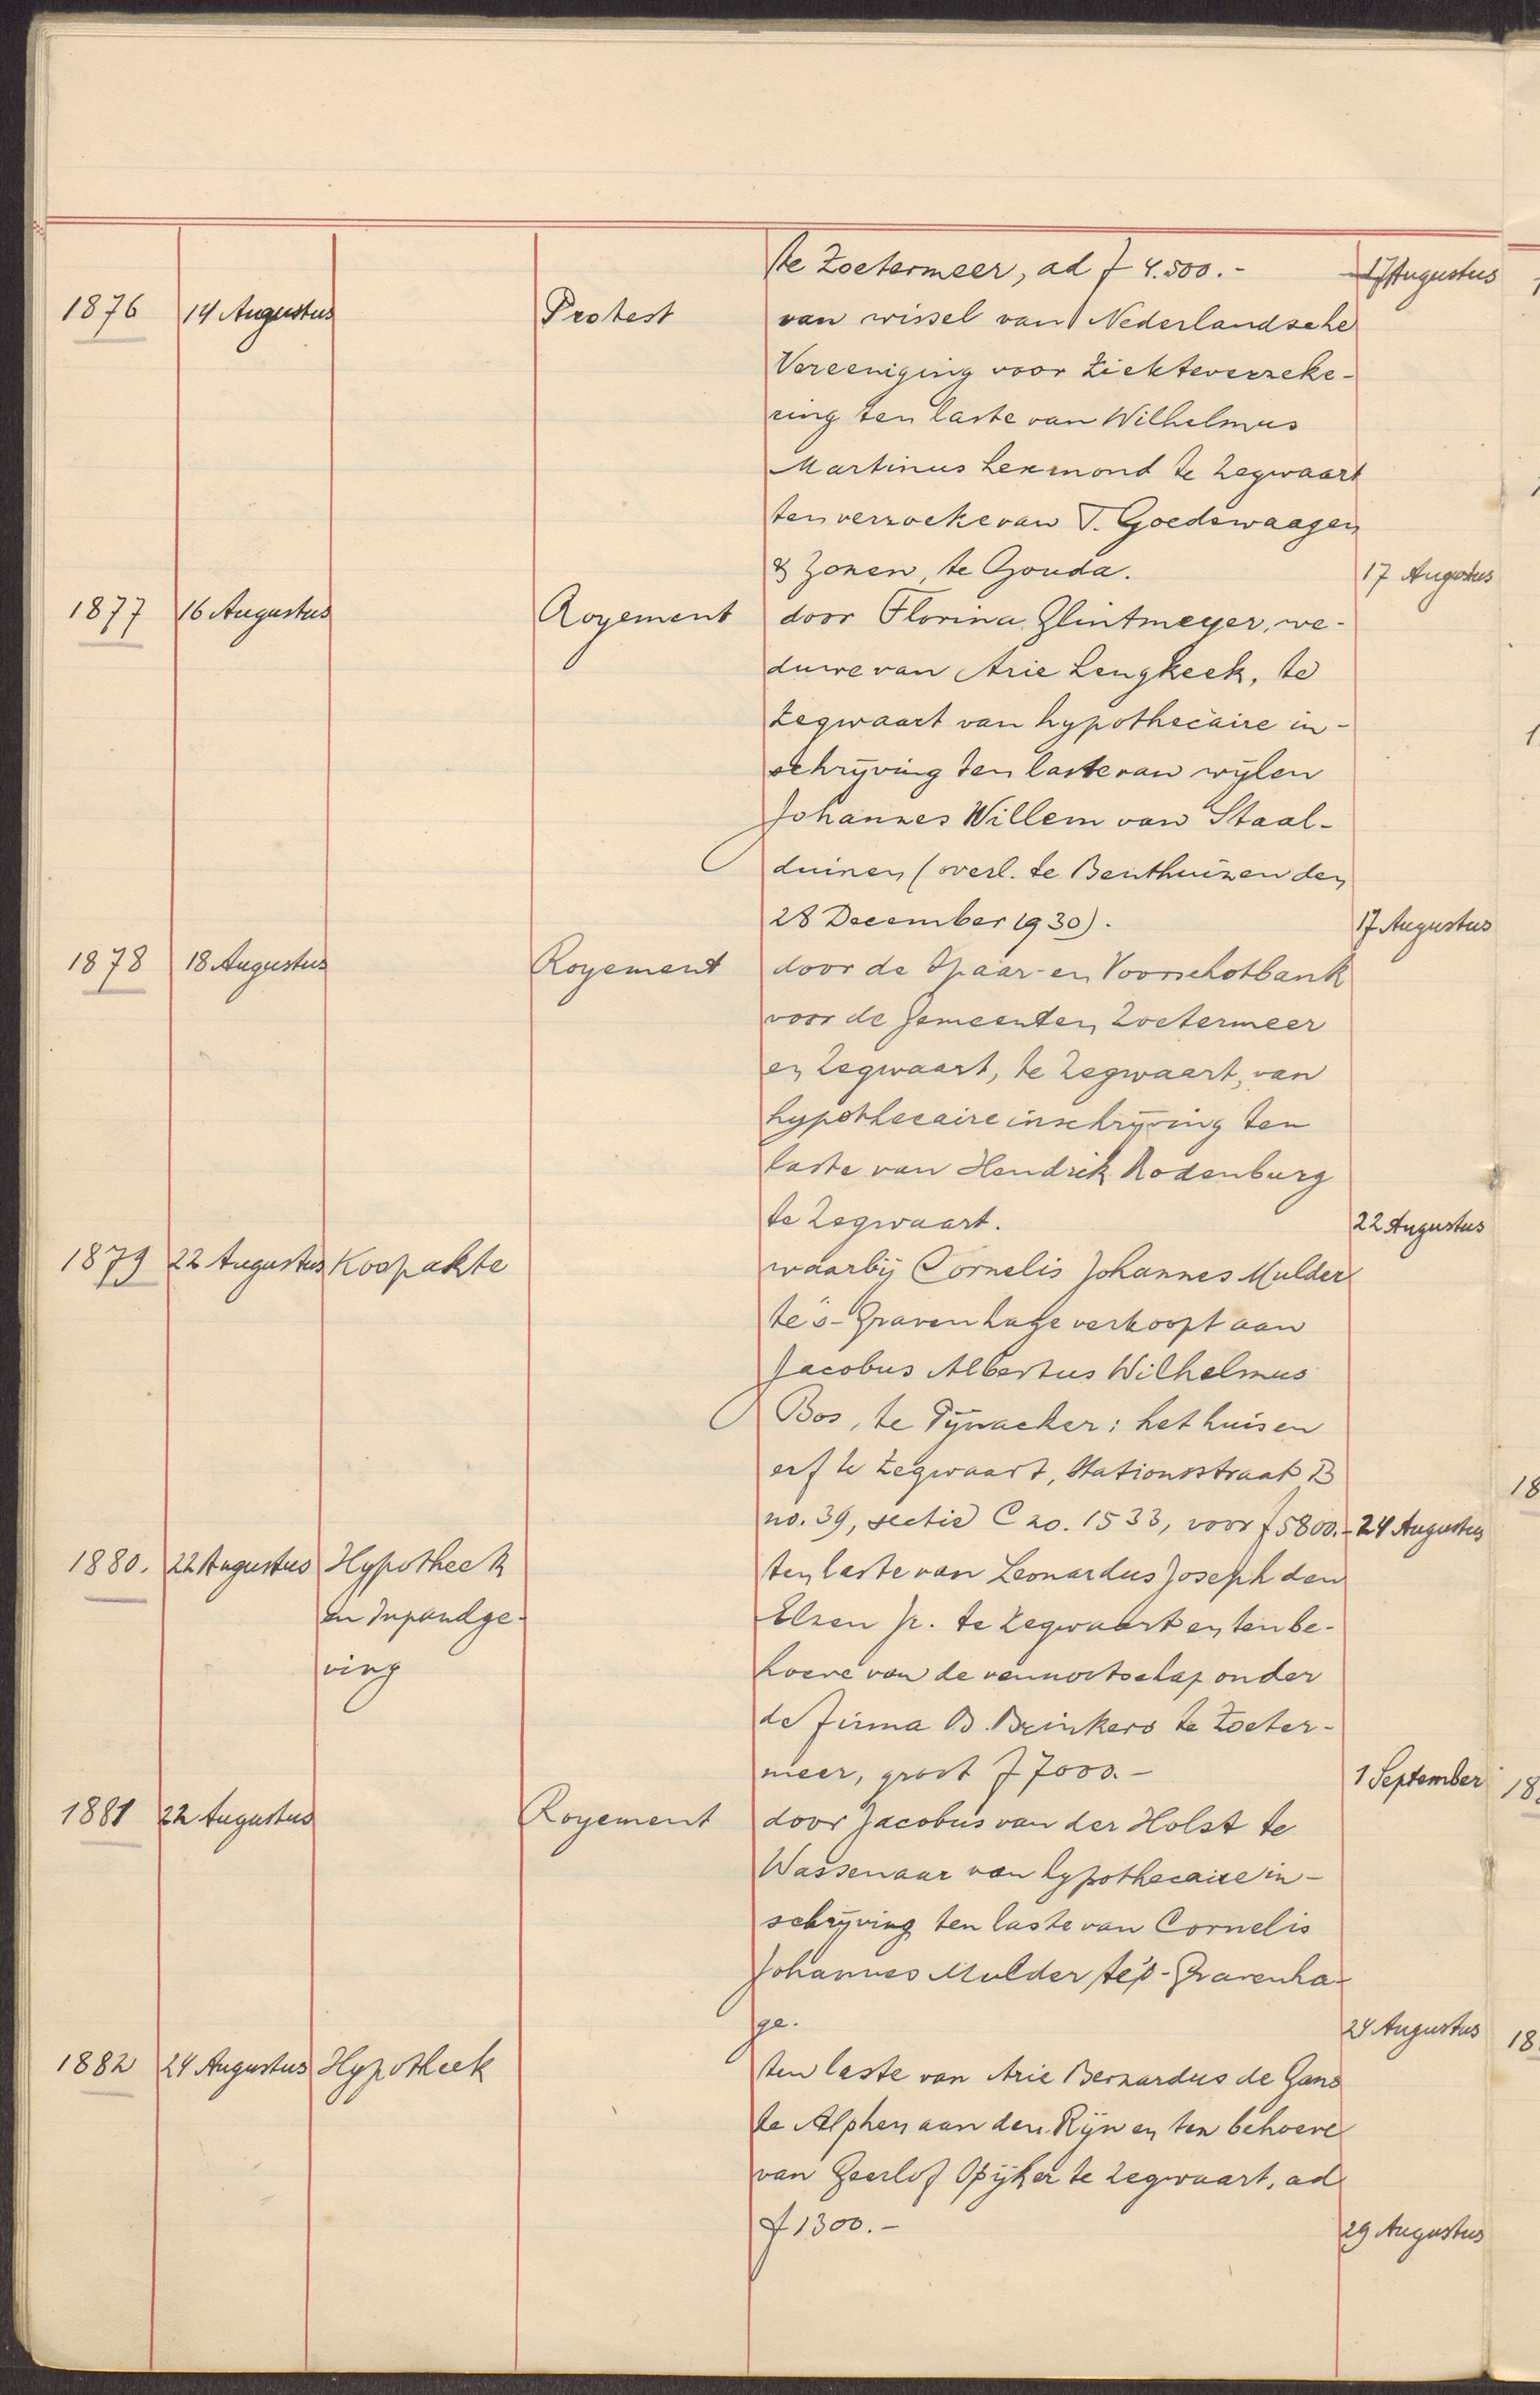 te Zoetermeer, ad ƒ 4.500.- 17 Augustus
1876 14 Augustus Protest van wissel van Nederlandsche
Vereeniging voor Ziekteverzeke-
ring ten laste van Wilhelmus
Martinus Lexmond te Zegwaart
ten verzoeke van T. Goedewaagen
& Zonen, te Gouda. 17 Augustus
1877 16 Augustus Royement door Florina Glintmeyer, we-
duwe van Arie Lengkeek, te
Zegwaart van hypothecaire in-
schrijving ten laste van wijlen
Johannes Willem van Staal-
duinen (overl. te Benthuizen den
28 December 1930). 17 Augustus
1878 18 Augustus Royement door de Spaar- en Voorschotbank
voor de Gemeenten Zoetermeer
en Zegwaart, te Zegwaart, van
hypothecaire inschrijving ten
laste van Hendrik Rodenburg
te Zegwaart. 22 Augustus
1879 22 Augustus Koopakte waarbij Cornelis Johannes Mulder
te 's-Gravenhage verkoopt aan
Jacobus Albertus Wilhelmus
Bos, te Pijnacker: het huis en
erf te Zegwaart, Stationsstraat B
no. 39, sectie C no. 1533, voor ƒ 5800.- 24 Augustus
1880. 22 Augustus Hypotheek ten laste van Leonardus Joseph den
en Inpandge- Elzen Jr. te Zegwaart en ten be-
ving hoeve van de vennootschap onder
de firma B. Brinkers te Zoeter-
meer, groot ƒ 7000.- 1 September
1881 22 Augustus Royement door Jacobus van der Holst te
Wassenaar van hypothecaire in-
schrijving ten laste van Cornelis
Johannes Mulder te 's-Gravenha-
ge. 24 Augustus
1882 24 Augustus Hypotheek ten laste van Arie Bernardus de Gans
te Alphen aan den Rijn en ten behoeve
van Geerlof Spijker te Zegwaart, ad
ƒ 1300.- 29 Augustus